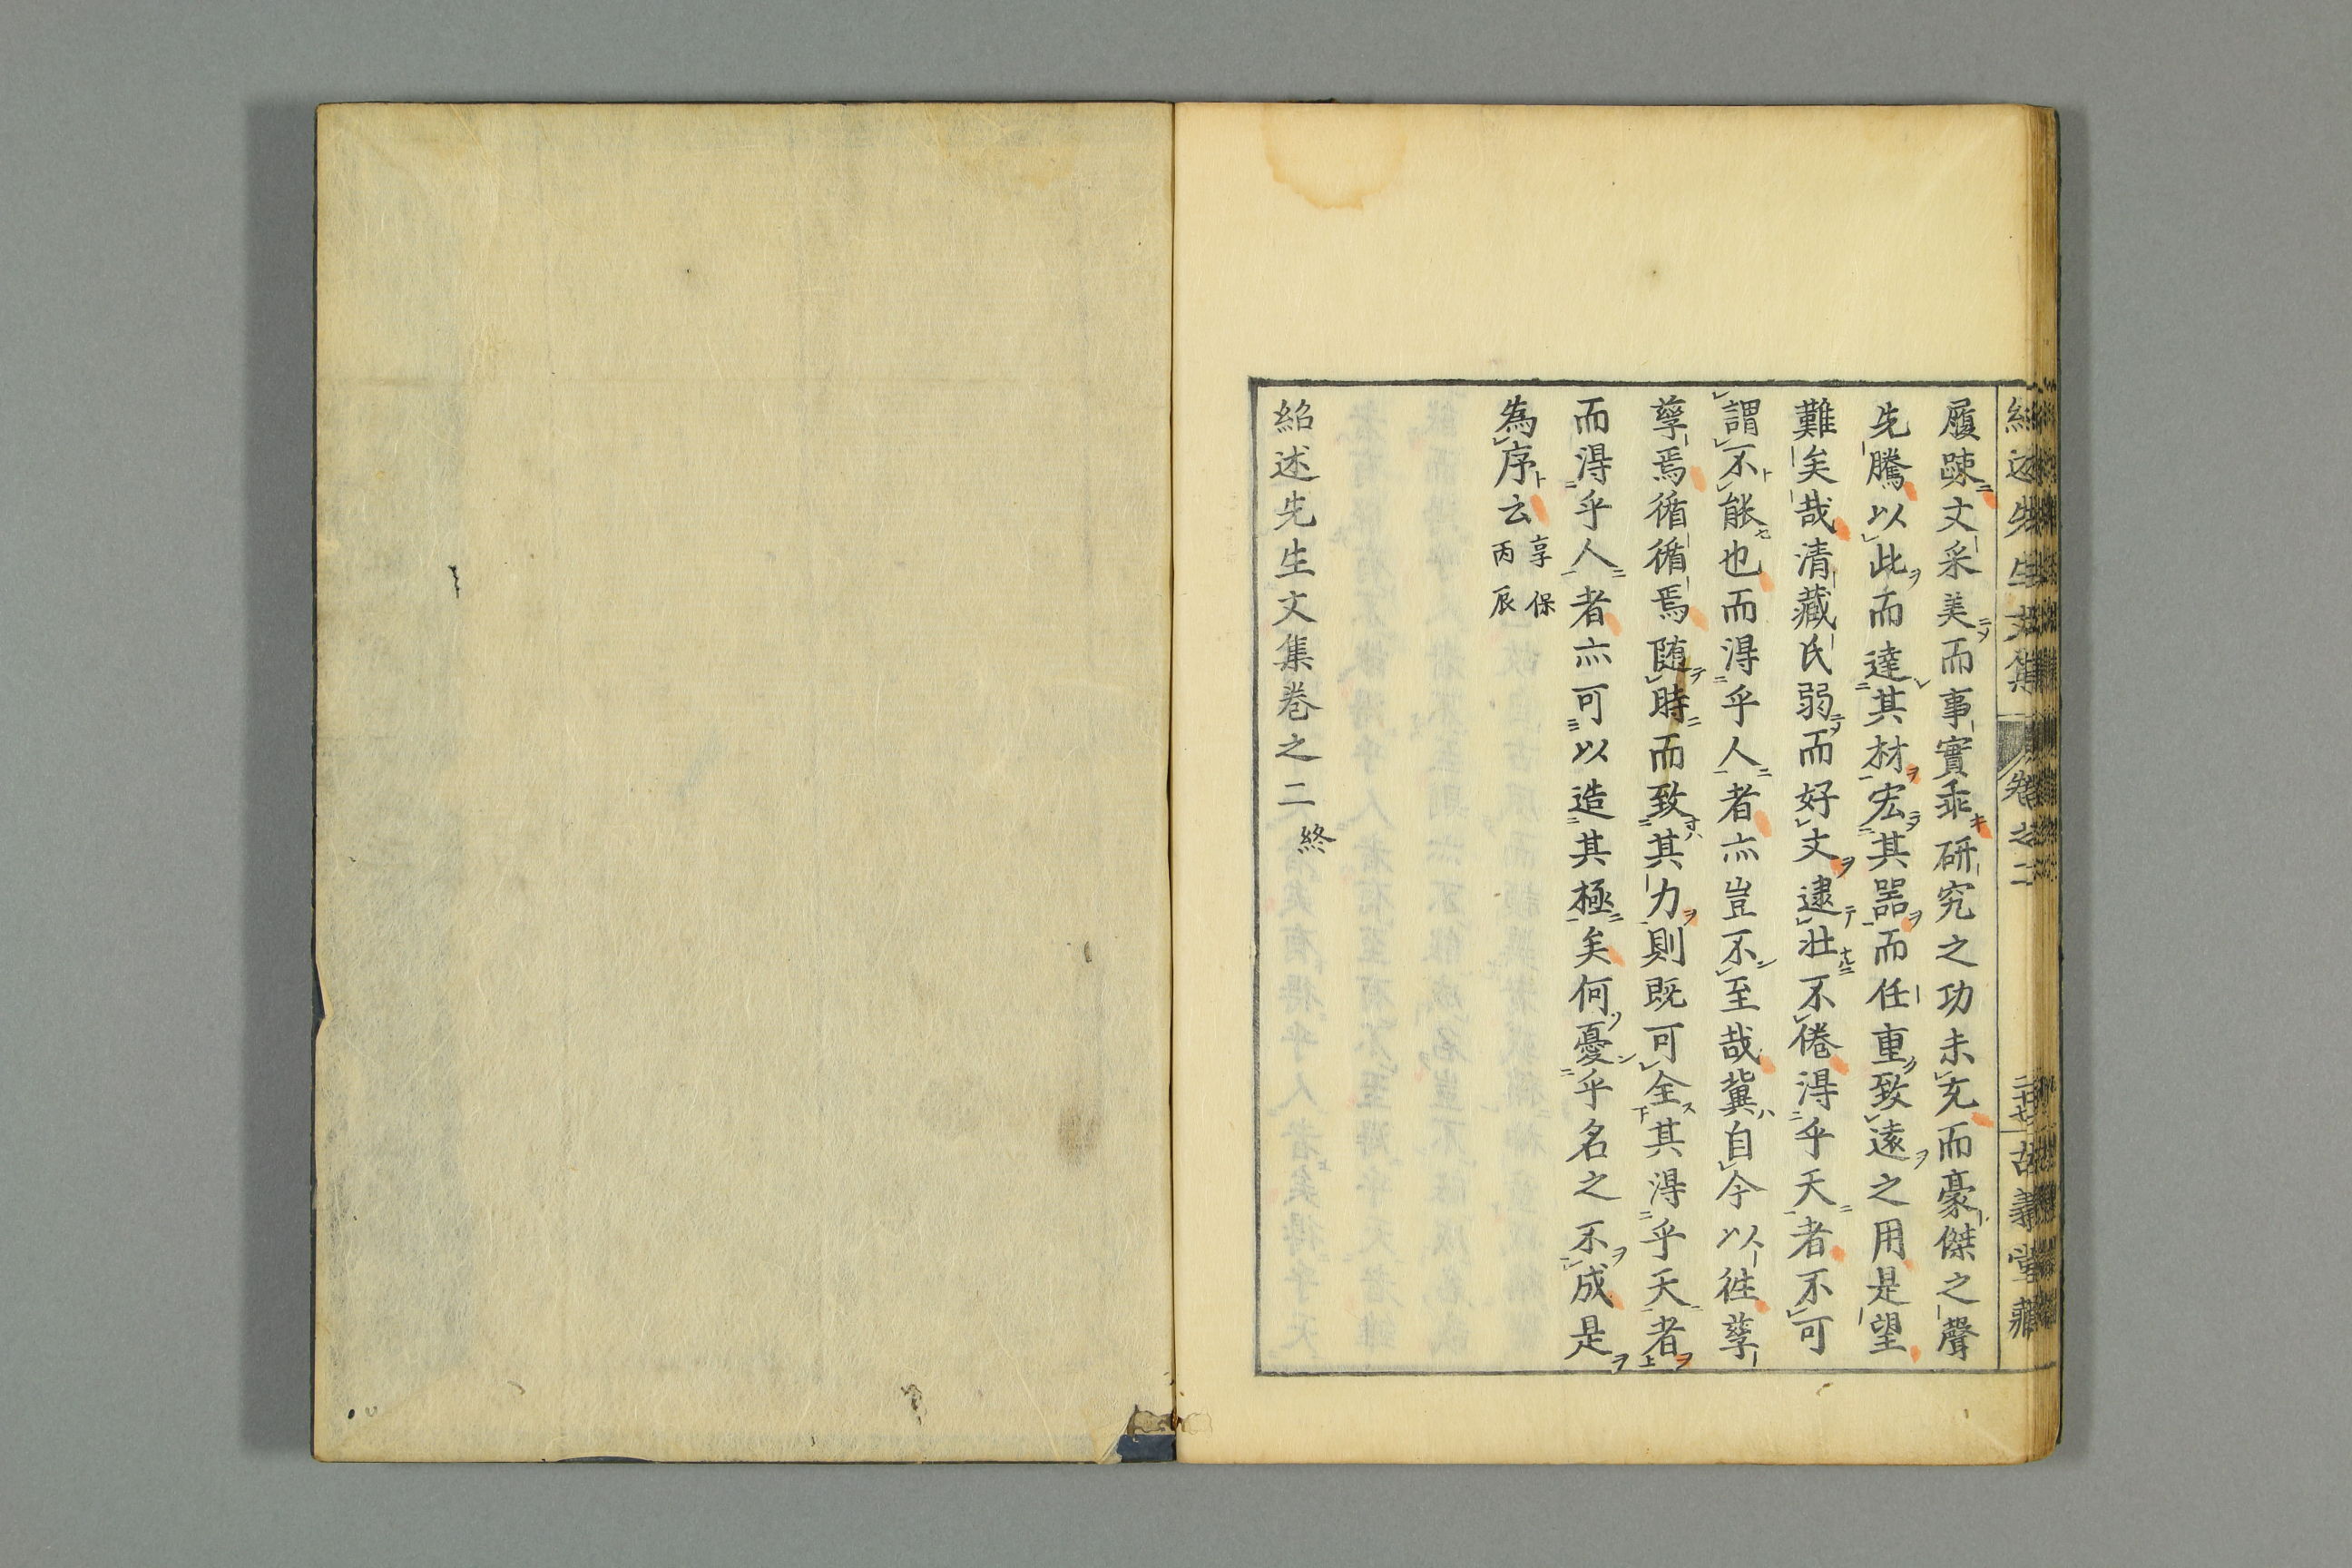 履踈文采美而事實乖研究之功未充而豪傑之聲
先騰以此而達其材宏其器而任重致遠之用是望
難矣哉清藏氏弱而好文逮壯不倦得乎天者不可
謂不能也而得乎人者亦豈不至哉冀自今以徃孳
孳焉循循焉随時而致其力則既可全其得乎天者
而得乎人者亦可以造其極矣何憂乎名之不成是
為序云 享保丙辰
紹述先生文集卷之二終